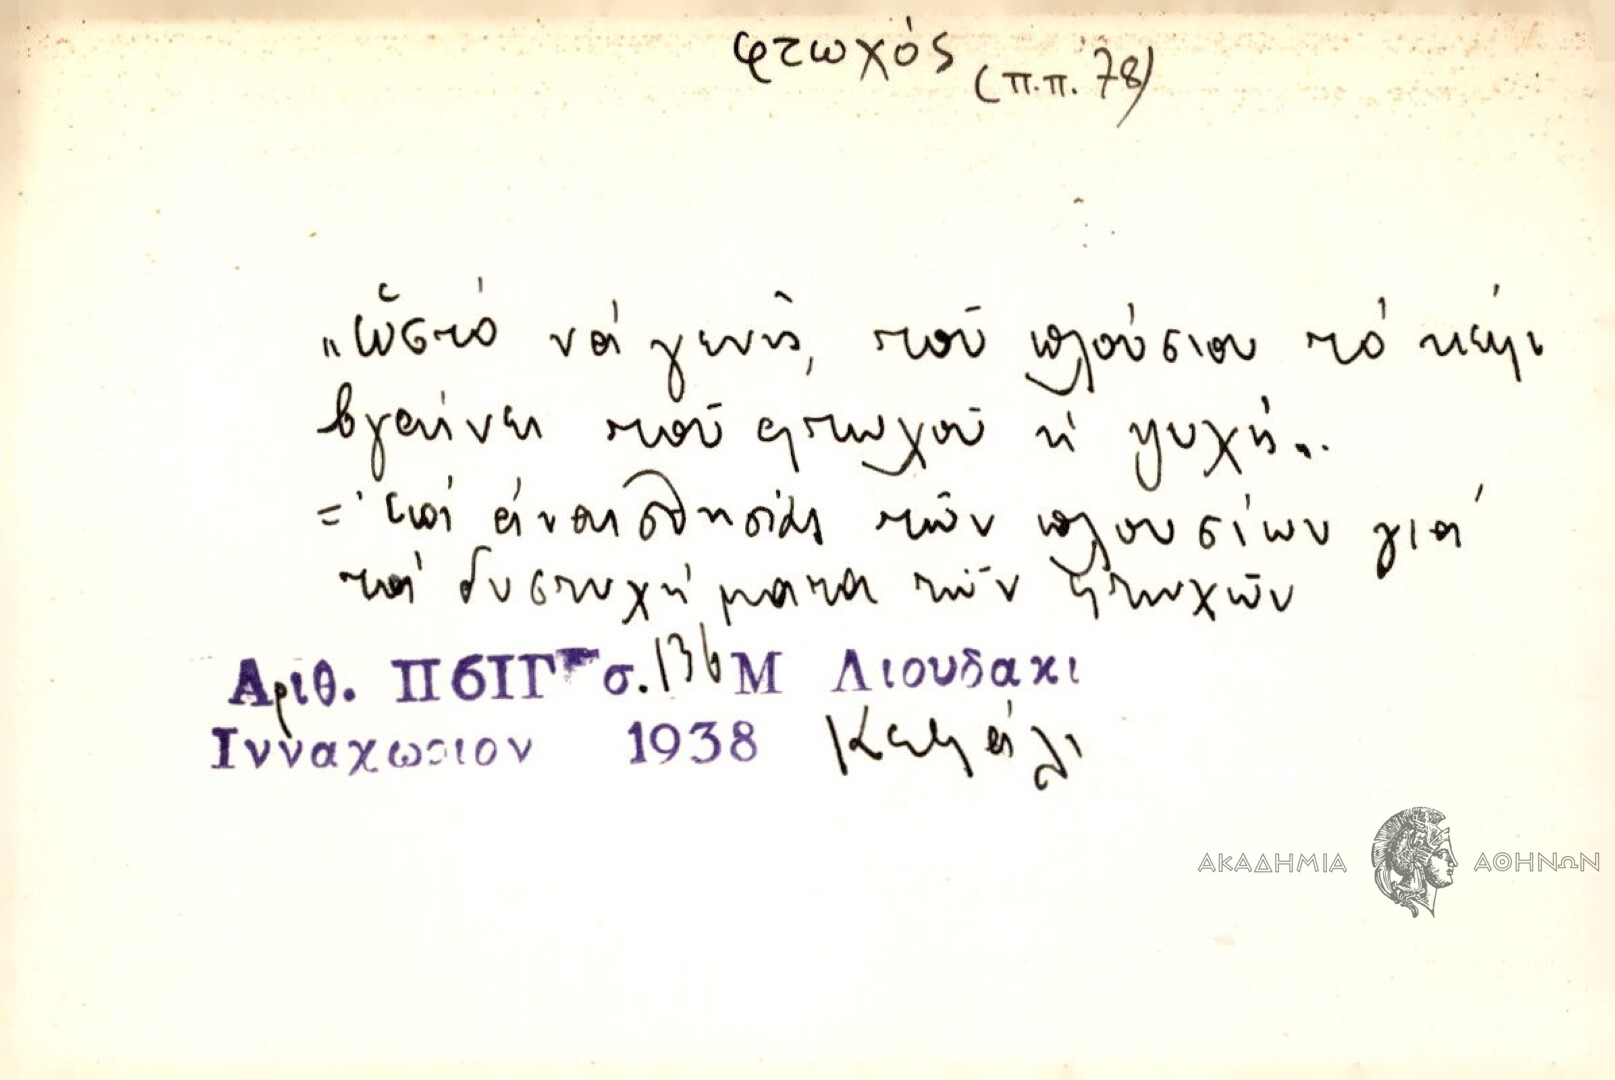 φτωχός (π.π. 78)
„Ὥστό νά γενῇ, τοῦ πλούσιου τό κέφι
βγαίνει τοῦ φτωχοῦ ἡ ψυχή..
= ἐπί ἀναισθησίας τῶν πλουσίων γιά
τά δυστυχήματα τῶν φτωχῶν
Αριθ. Π6ΙΓ σ. 136 Μ Λιουδακι
Ινναχωριον 1938 Κεφάλι
ΑΚΑΔΗΜΙΑ ΑΘΗΝΩΝ